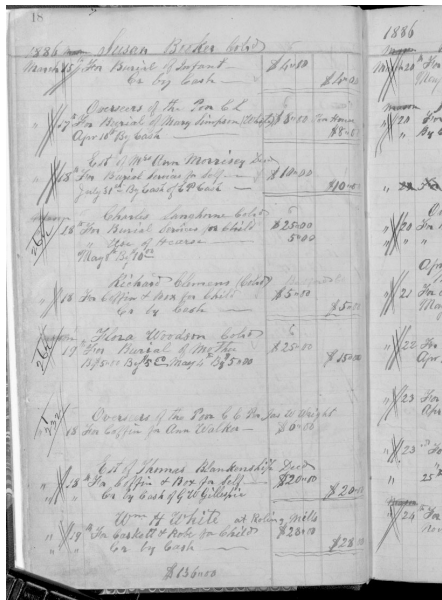 18
1886 Susan Booker Cold
March 15th For Burial of Infant $4.00
Cr by Cash $4.00
Overseers of the Poor C.C.
" 17th For Burial of Mary Simpson (White) $8.00 Poor House
Apr 10th By Cash $8.00
Est of Mrs Ann Morrisey Decd
" 18th For Burial Services for Self $10.00
July 31st By Cash of Cash $10.00
Charles Langhorne Cold
" 18th For Burial Services for Child $25.00
" Use of Hearse 5.00
May 8th By 10.00
Richard Clemens Cold
" 18 For Coffin & Box for Child $5.00
Cr by Cash $5.00
Flora Woodson Cold
" 19th For Burial of Mother $25.00
By 5.00 By 5 May 4 By 5.00 $15.00
Overseers of the Poor C.C. Per Jas W Wright
" 18 For Coffin for Ann Walker $0.00
Est of Thomas Blankenship Decd
" 18th For Coffin & Box for Self $20.00
" " Cr by Cash of G W Gillespie $20.00
Wm H White at Roling Mills
" 19th For Caskett & Robe for Child $28.00
" " Cr by Cash $28.00
$136.00
1886
March 20th For
May
" 20 For
" By C
" 20 For
" "
Apr
" 21 For
" 22 For
Apr
" 23 For
Apr
" 23 " Fo
" 25th
" 24th For
Nov